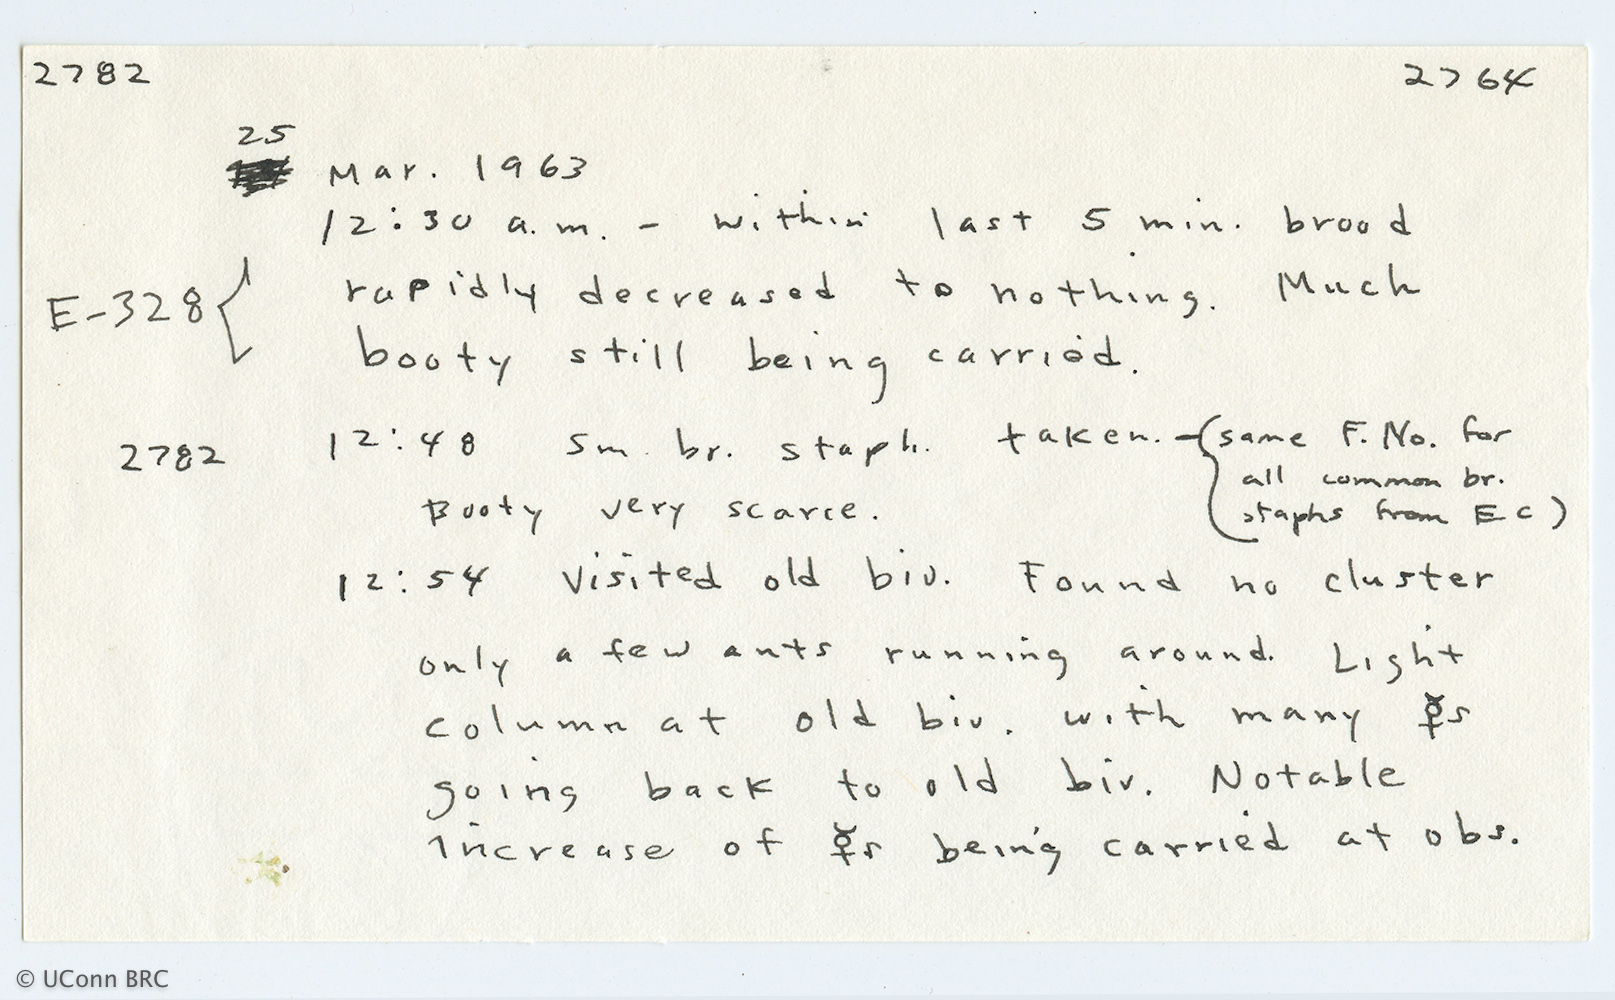 2782 2764
25
Mar. 1963
12:30 a.m. - within last 5 min. brood
E-328 { rapidly decreased to nothing. Much
booty still being carried.
2782 12:48 sm. br. staph. taken. - (same F. No. for
all common br.
Booty very scarce. staphs from EC)
12:54 Visited old biv. Found no cluster
only a few ants running around. Light
column at old biv. with many ☿s
going back to old biv. Notable
increase of ☿s being carried at obs.
© UConn BRC